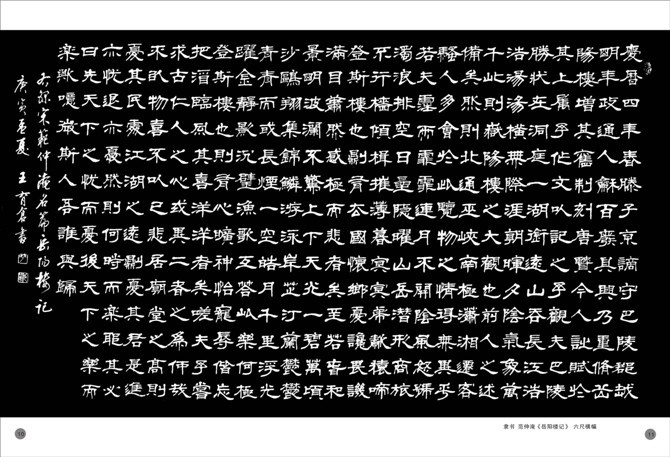 慶曆四年春滕子京謫守巴陵郡越
明年政通人和百廢具興乃重修岳
陽樓增其舊制刻唐賢今人詩賦於
其上屬予作文以記之予觀夫巴陵
勝狀在洞庭一湖銜遠山吞長江浩
浩湯湯橫無際涯朝暉夕陰氣象萬
千此則嶽陽樓之大觀也前人之述
備矣然則北通巫峽南極瀟湘遷客
騷人多會於此覽物之情得無異乎
若夫霪雨霏霏連月不開陰風怒號
濁浪排空日星隱曜山岳潛形商旅
不行檣傾楫摧薄暮冥冥虎嘯猿啼
登斯樓也則有去國懷鄉憂讒畏譏
滿目蕭然感極而悲者矣至若春和
景明波瀾不驚上下天光一碧萬頃
沙鷗翔集錦鱗游泳岸芷汀蘭鬱鬱
青青而或長煙一空皓月千里浮光
躍金靜影沉璧漁歌互答此樂何極
登斯樓也則有心曠神怡寵辱偕忘
把酒臨風其喜洋洋者矣嗟夫予嘗
求古仁人之心或異二者之為何哉
不以物喜不以己悲居廟堂之高則
憂其民處江湖之遠則憂其君是進
亦憂退亦憂然則何時而樂耶其必
曰先天下之憂而憂後天下之樂而
樂歟噫微斯人吾誰與歸
右錄宋範仲淹名篇岳陽樓記
庚寅孟夏 王有倉書
隶书 范仲淹《岳阳楼记》 六尺横幅
10
11